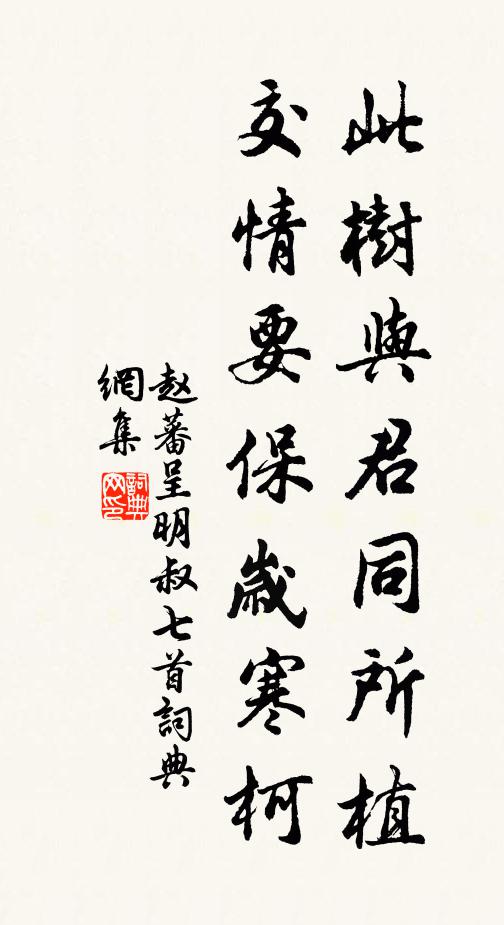 此樹與君同所植
交情要保歲寒柯
赵蕃呈明叔七首詞典
網集
詞典
网印